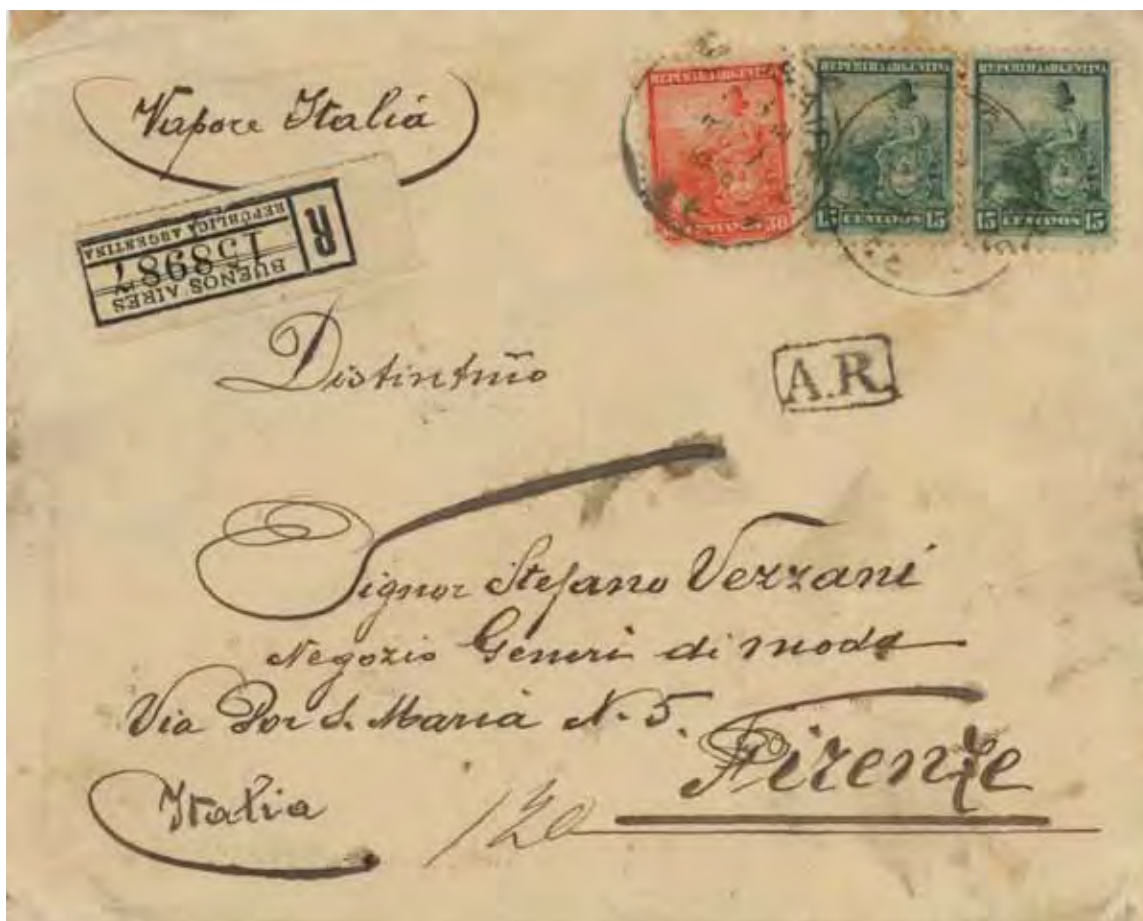 Vapore Italiá
REPUBLICA ARGENTINA
30
REPUBLICA ARGENTINA
15 CENTAVOS 15
REPUBLICA ARGENTINA
15 CENTAVOS 15
R
BUENOS AIRES
158987
REPÚBLICA ARGENTINA
Distintmo
A.R.
Signor Stefano Vezzani
Negozio Generi di moda
Via Por S. Maria N. 5.
Firenze
Italia
120